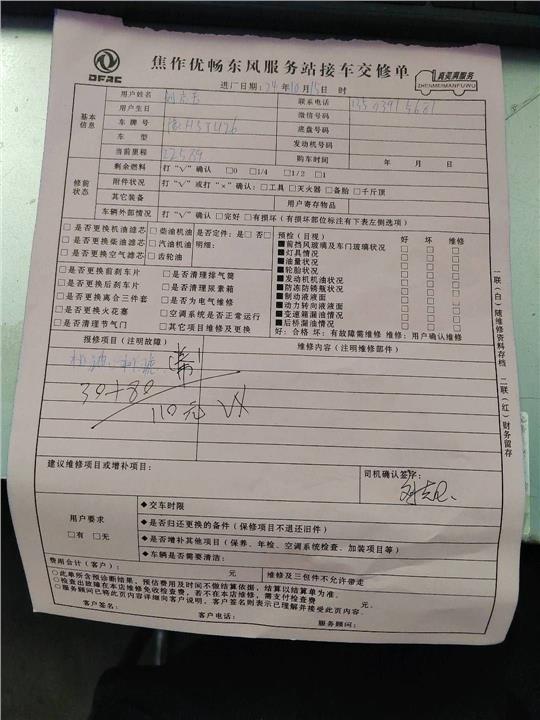 DFAC
焦作优畅东风服务站接车交修单
真芙蓉服务
ZHENMEIMANFUWU
进厂日期：24 年 10 月 15 日 时
基本信息
用户姓名
联系电话
用户生日
微信号码
车牌号
底盘号码
车型
发动机号码
当前里程
购车时间 年 月 日
修前状态
剩余燃料 打“√”确认 □0 □1/4 □1/2 □1
附件状况 打“√”或打“×”确认：□工具 □灭火器 □备胎 □千斤顶
其它装备 用户寄存物品
车辆外部情况 打“√”确认 □完好 □有损坏（有损坏部位标注有下表左侧选项）
□是否更换机油滤芯 □柴油机油 是否定件：□是 否□
□是否更换柴油滤芯 □汽油机油 明细：
□是否更换空气滤芯 □齿轮油
预检（目视） 好 坏 维修
■前挡风玻璃及车门玻璃状况
■灯具情况
■油量状况
■轮胎状况
■发动机机油状况
■防冻防锈瓶状况
■制动液液面
■动力转向液液面
■变速箱漏油情况
■后桥漏油情况
好：合格 坏：有故障需维修 维修：用户确认维修
□是否更换前刹车片 □是否清理排气筒
□是否更换后刹车片 □是否清理尿素箱
□是否更换离合三件套 □是否为电气维修
□是否更换火花塞 □空调系统是否正常运行
□是否清理节气门 □其它项目维修及更换
报修项目（注明故障） 维修内容（注明维修部件）
30+80
110元
建议维修项目或增补项目：
司机确认签字：
用户要求
□有 □无
◆交车时限
◆是否归还更换的备件（保修项目不退还旧件）
◆是否增补其他项目（保养、年检、空调系统检查、加装项目等）
◆车辆是否需要清洁：
费用合计（客户）： 元 维修及三包件不允许带走
○此单所含预诊断结果，预估费用及时间不做结算依据，结算以结算单为准。
○检查出故障在本店维修免收检查费，若不在本店维修，需支付检查费
○服务顾问已将此页内容详细向客户说明，客户签名则表示已理解并接受此页内容。
客户签名： 客户电话： 服务顾问：
一联（白）随维修资料存档 二联（红）财务留存